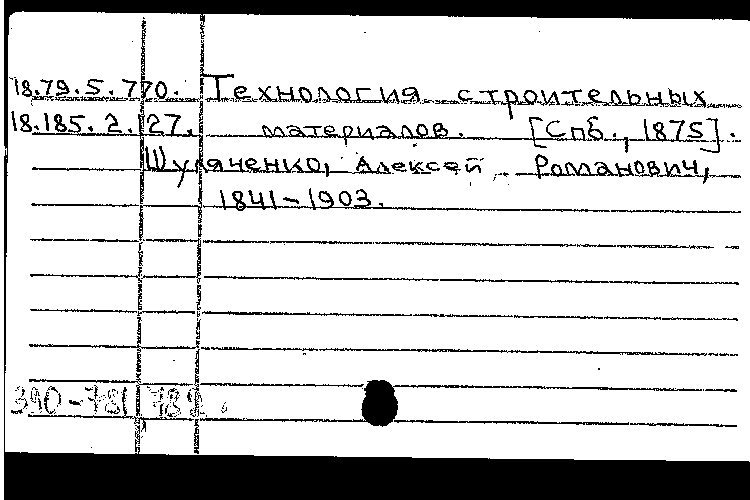 18.79.5.770. Технология строительных
18.185.2.127. материалов. [Спб., 1875].
Шуляченко, Алексей Романович,
1841-1903.
390-781 782.